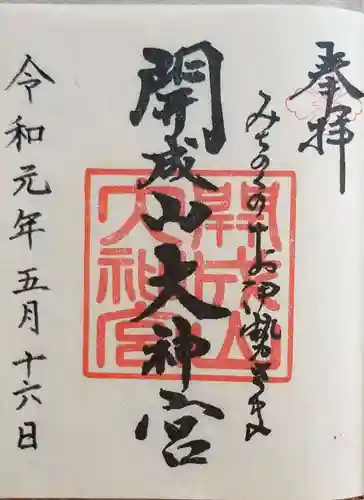 奉拝
みちのくのお伊勢さま
開成山大神宮
開成山
大神宮
令和元年五月十六日